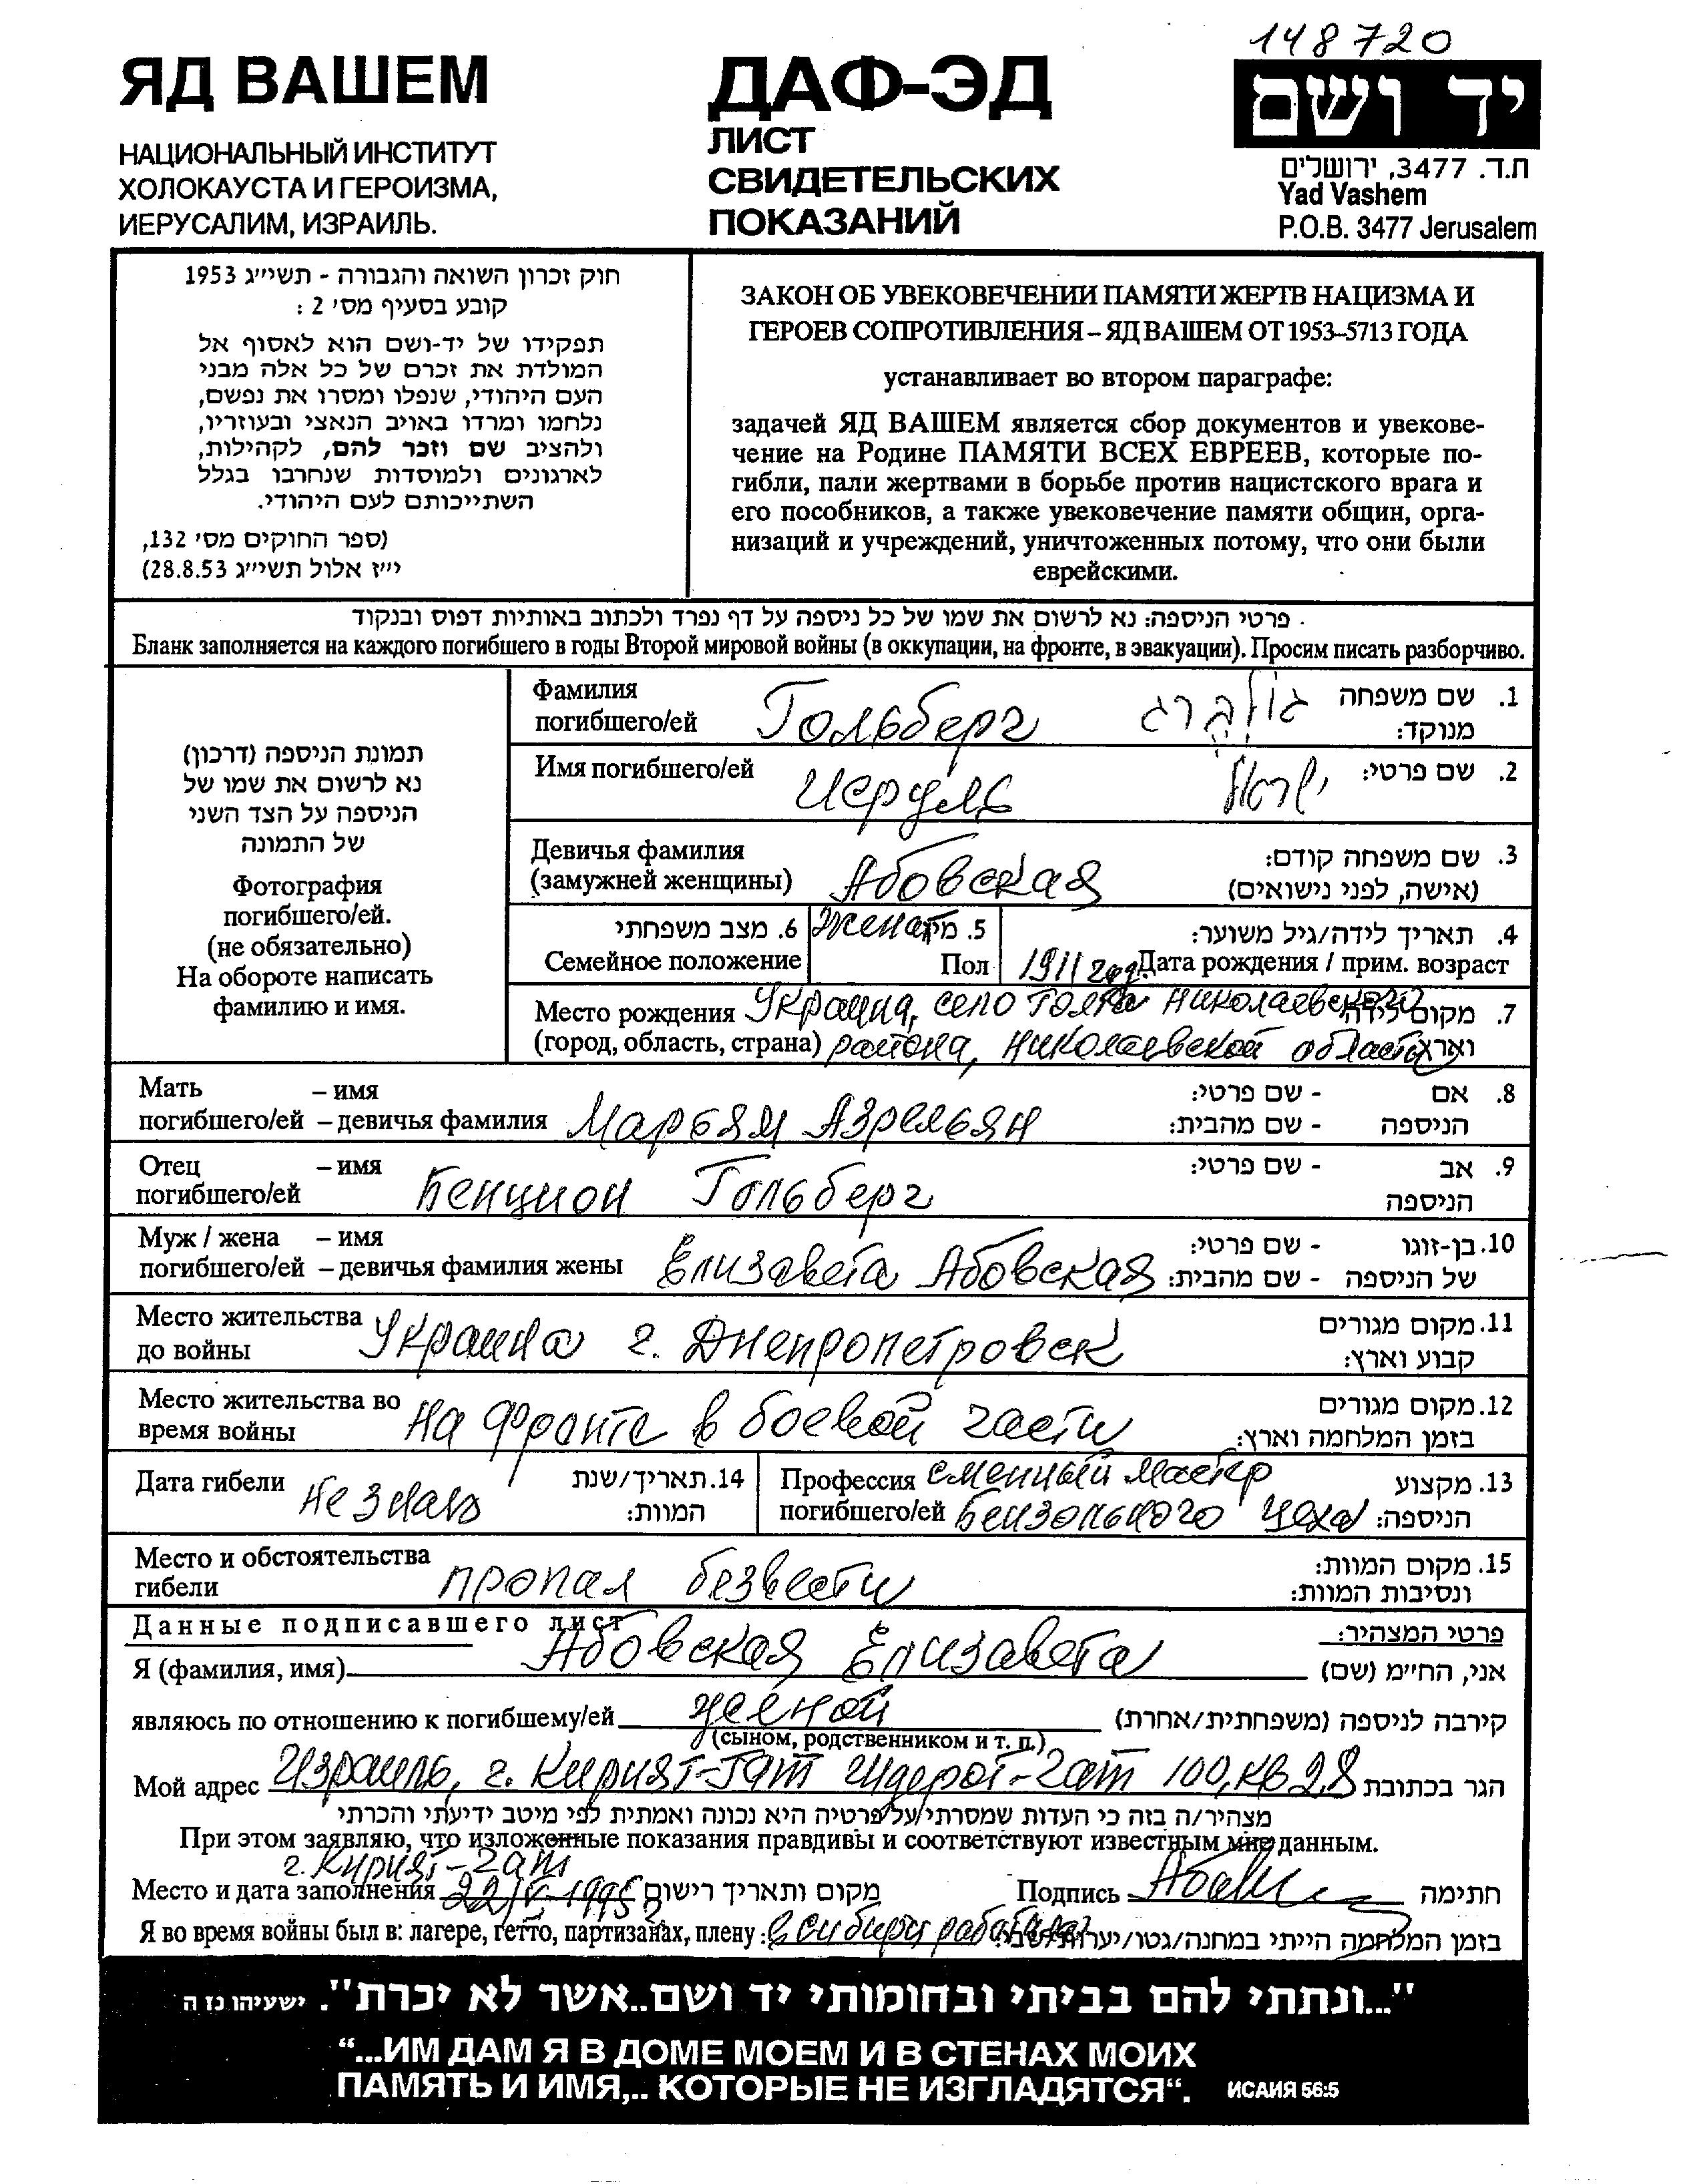 148720
ЯД ВАШЕМ
НАЦИОНАЛЬНЫЙ ИНСТИТУТ
ХОЛОКАУСТА И ГЕРОИЗМА,
ИЕРУСАЛИМ, ИЗРАИЛЬ.
ДАФ-ЭД
ЛИСТ
СВИДЕТЕЛЬСКИХ
ПОКАЗАНИЙ
יד ושם
ת.ד. 3477, ירושלים
Yad Vashem
P.O.B. 3477 Jerusalem
חוק זכרון השואה והגבורה - תשי״ג 1953
קובע בסעיף מס׳ 2 :
תפקידו של יד-ושם הוא לאסוף אל
המולדת את זכרם של כל אלה מבני
העם היהודי, שנפלו ומסרו את נפשם,
נלחמו ומרדו באויב הנאצי ובעוזריו,
ולהציב שם וזכר להם, לקהילות,
לארגונים ולמוסדות שנחרבו בגלל
השתייכותם לעם היהודי.
(ספר החוקים מס׳ 132,
י״ז אלול תשי״ג 28.8.53)
ЗАКОН ОБ УВЕКОВЕЧЕНИИ ПАМЯТИ ЖЕРТВ НАЦИЗМА И
ГЕРОЕВ СОПРОТИВЛЕНИЯ – ЯД ВАШЕМ ОТ 1953–5713 ГОДА
устанавливает во втором параграфе:
задачей ЯД ВАШЕМ является сбор документов и увекове-
чение на Родине ПАМЯТИ ВСЕХ ЕВРЕЕВ, которые по-
гибли, пали жертвами в борьбе против нацистского врага и
его пособников, а также увековечение памяти общин, орга-
низаций и учреждений, уничтоженных потому, что они были
еврейскими.
פרטי הניספה: נא לרשום את שמו של כל ניספה על דף נפרד ולכתוב באותיות דפוס ובנקוד
Бланк заполняется на каждого погибшего в годы Второй мировой войны (в оккупации, на фронте, в эвакуации). Просим писать разборчиво.
תמונת הניספה (דרכון)
נא לרשום את שמו של
הניספה על הצד השני
של התמונה
Фотография
погибшего/ей.
(не обязательно)
На обороте написать
фамилию и имя.
Фамилия
погибшего/ей Гольберг גולברג
1. שם משפחה
מנוקד:
Имя погибшего/ей Исруль ישראל 2. שם פרטי:
Девичья фамилия
(замужней женщины) Абовская
3. שם משפחה קודם:
(אישה, לפני נישואים)
6. מצב משפחתי
Семейное положение
женат 5. מין
Пол
4. תאריך לידה/גיל משוער:
1911 год Дата рождения / прим. возраст
Место рождения Украина, село Голта Николаевского
(город, область, страна) района, Николаевской области
7. מקום לידה
וארץ
Мать – имя
погибшего/ей – девичья фамилия Марьям Азрельян
8. אם - שם פרטי:
הניספה - שם מהבית:
Отец – имя
погибшего/ей Бенцион Гольберг
9. אב - שם פרטי:
הניספה
Муж / жена – имя
погибшего/ей – девичья фамилия жены Елизавета Абовская
10. בן-זוגו - שם פרטי:
של הניספה - שם מהבית:
Место жительства
до войны Украина г. Днепропетровск
11. מקום מגורים
קבוע וארץ:
Место жительства во
время войны На фронте в боевой части
12. מקום מגורים
בזמן המלחמה וארץ:
Дата гибели Не знаю
14. תאריך/שנת
המוות:
Профессия сменный мастер
погибшего/ей бензольного цеха
13. מקצוע
הניספה:
Место и обстоятельства
гибели пропал безвести
15. מקום המוות:
ונסיבות המוות:
Данные подписавшего лист
פרטי המצהיר:
Я (фамилия, имя) Абовская Елизавета אני, החי״מ (שם)
являюсь по отношению к погибшему/ей женой קירבה לניספה (משפחתית/אחרת)
(сыном, родственником и т. п.)
Мой адрес Израиль, г. Кирият-Гат Шдерот-Гат 100, кв 28 הגר בכתובת
מצהיר/ה בזה כי העדות שמסרתי על פרטיה היא נכונה ואמתית לפי מיטב ידיעתי והכרתי
При этом заявляю, что изложенные показания правдивы и соответствуют известным мне данным.
г. Кирият-Гат
Место и дата заполнения 22/V-1995г מקום ותאריך רישום Подпись חתימה
Я во время войны был в: лагере, гетто, партизанах, плену: в Сибири работала בזמן המלחמה הייתי במחנה/גטו/יערות/שבי:
"...ונתתי להם בביתי ובחומותי יד ושם..אשר לא יכרת". ישעיהו נז ה
“...ИМ ДАМ Я В ДОМЕ МОЕМ И В СТЕНАХ МОИХ
ПАМЯТЬ И ИМЯ,.. КОТОРЫЕ НЕ ИЗГЛАДЯТСЯ“. ИСАИЯ 56:5